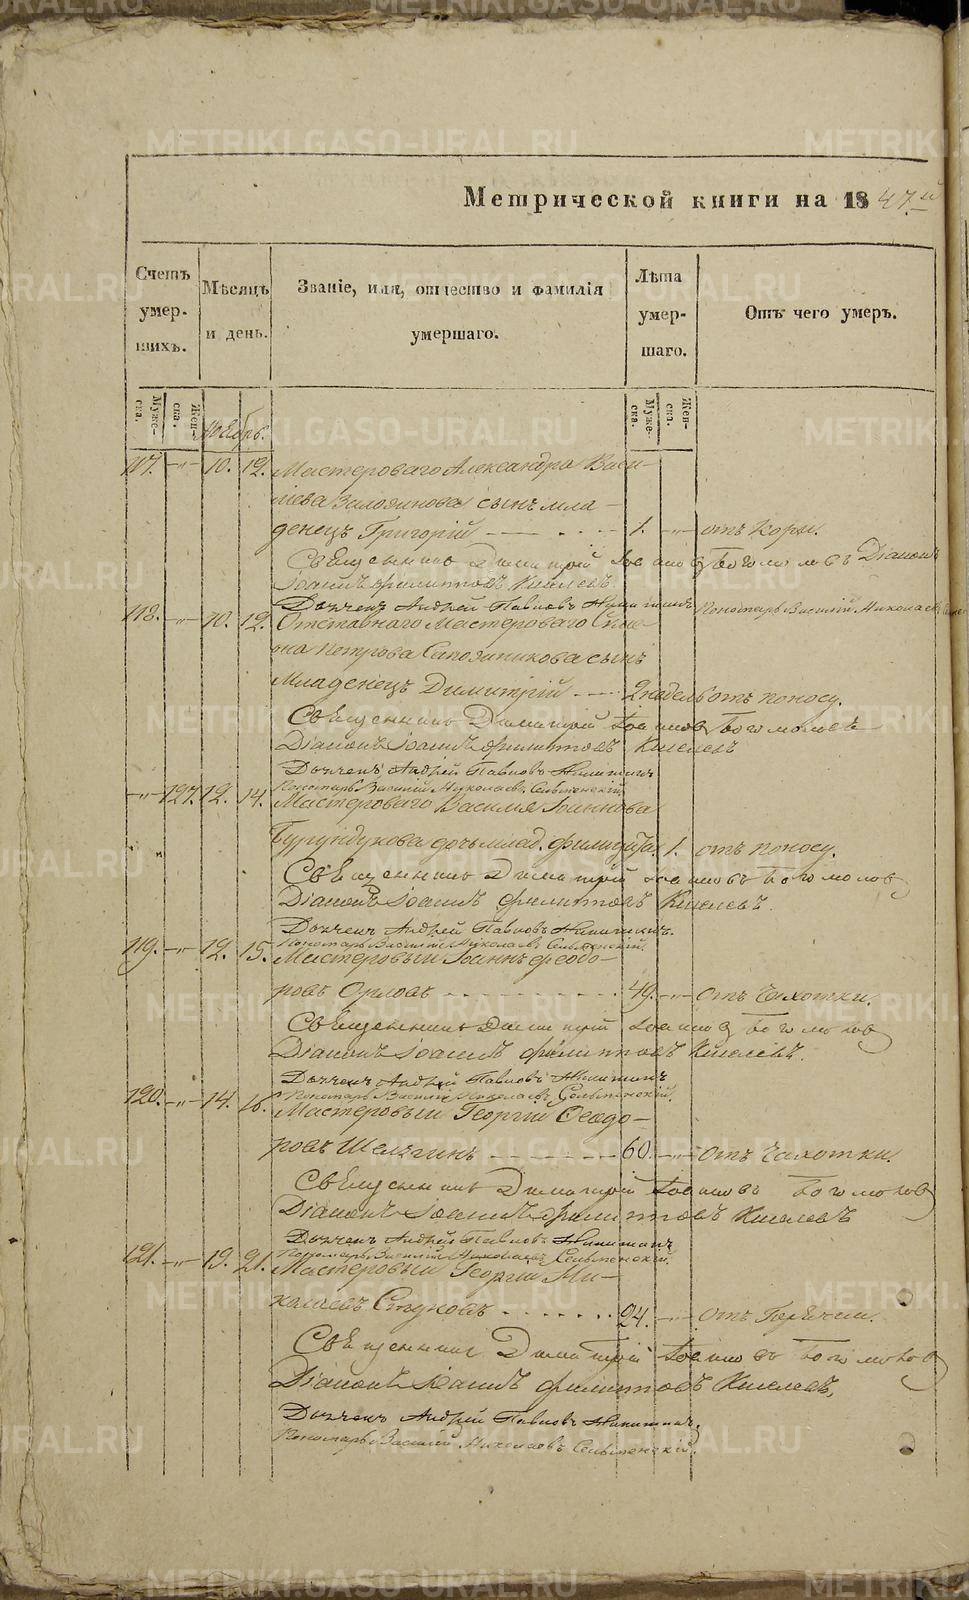 Метрической книги на 1847.й
Счетъ умер- шихъ.
Мѣсяцъ и день.
Званіе, имя, отчество и фамилія умершаго.
Лѣта умер- шаго.
Отъ чего умеръ.
Муже- ска.
Жен- ска.
Ноябрь.
Муже- ска.
Жен- ска.
117. -„- 10. 12. Мастероваго Александра Васи-
сынъ мла-
денецъ Григорій 1. -„- отъ Кори.
Священникъ Димитрій Іоанновъ Богомоловъ Діаконъ
Іоаннъ Филипповъ Киселевъ
Дьячекъ Андрей Павловъ Никитинъ Пономарь Василій Николаевъ
118. -„- 10. 12. Отставнаго Мастероваго
Петрова Сапожникова сынъ
Младенецъ Димитрій 2 недель отъ поносу.
Священникъ Димитрій Іоанновъ Богомоловъ
Діаконъ Іоаннъ Филипповъ Киселевъ
Дьячекъ Андрей Павловъ Никитинъ
Пономарь Василій Николаевъ Сельменскій
-„- 127. 12. 14. Мастероваго Василія Іоаннова
Бурундукова дочь млад. 1. отъ поносу.
Священникъ Димитрій Іоанновъ Богомоловъ
Діаконъ Іоаннъ Филипповъ Киселевъ.
Дьячекъ Андрей Павловъ Никитинъ.
Пономарь Василій Николаевъ Сельменскій.
119. -„- 12. 15. Мастеровый Іоаннъ Феодо-
ровъ Орловъ 49. -„- отъ Чахотки.
Священникъ Димитрій Іоанновъ Богомоловъ
Діаконъ Іоаннъ Филипповъ Киселевъ.
Дьячекъ Андрей Павловъ Никитинъ
Пономарь Василій Николаевъ Сельменскій.
120. -„- 14. 16. Мастеровый Георгій Феодо-
ровъ 60. -„- отъ Чахотки.
Священникъ Димитрій Іоанновъ Богомоловъ
Діаконъ Іоаннъ Филипповъ Киселевъ
Дьячекъ Андрей Павловъ Никитинъ
Пономарь Василій Николаевъ Сельменскій.
121. -„- 19. 21. Мастеровый Георгій Ни-
колаевъ Стуковъ 24. -„- отъ Горячки.
Священникъ Димитрій Іоанновъ Богомоловъ
Діаконъ Іоаннъ Филипповъ Киселевъ,
Дьячекъ Андрей Павловъ Никитинъ,
Пономарь Василій Николаевъ Сельменскій.
METRIKI.GASO-URAL.RU